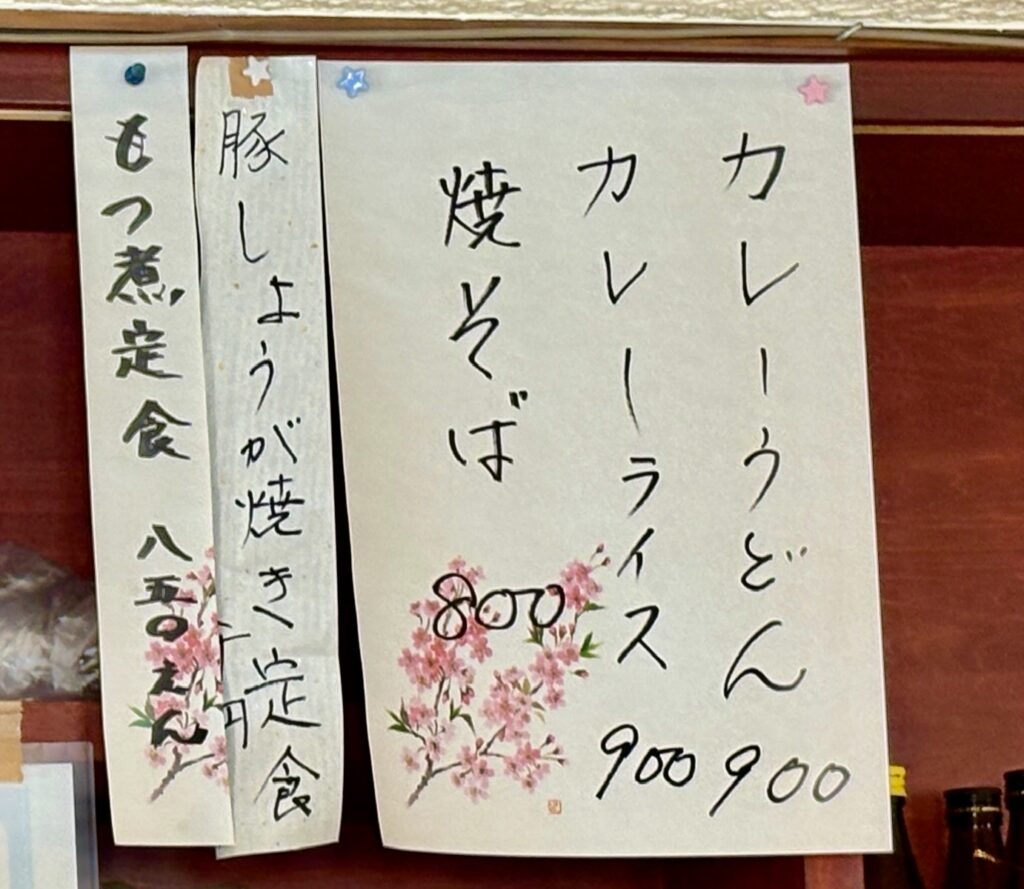 カレーうどん 900
カレーライス 900
焼そば 800
豚しょうが焼き定食
千円
もつ煮定食 八五〇えん